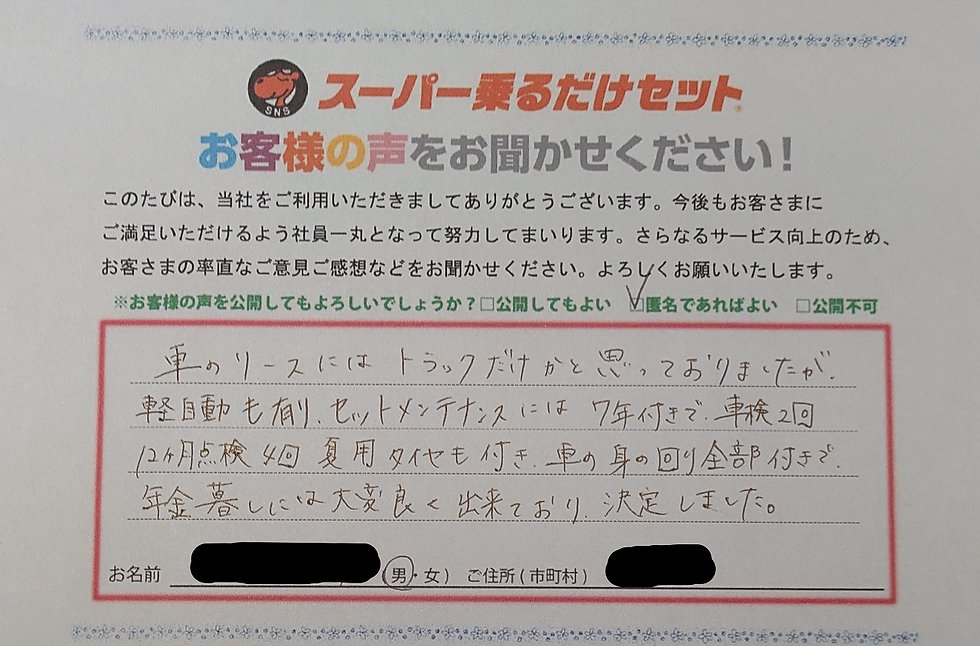 SNS
スーパー乗るだけセット
お客様の声をお聞かせください!
このたびは、当社をご利用いただきましてありがとうございます。今後もお客さまに
ご満足いただけるよう社員一丸となって努力してまいります。さらなるサービス向上のため、
お客さまの率直なご意見ご感想などをお聞かせください。よろしくお願いいたします。
※お客様の声を公開してもよろしいでしょうか?□公開してもよい ☑匿名であればよい □公開不可
車のリースにはトラックだけかと思っておりましたが、
軽自動も有り、セットメンテナンスには7年付きで、車検2回
12ヶ月点検4回夏用タイヤも付き、車の身の回り全部付きで、
年金暮しには大変良く出来ており、決定しました。
お名前 (男・女) ご住所(市町村)